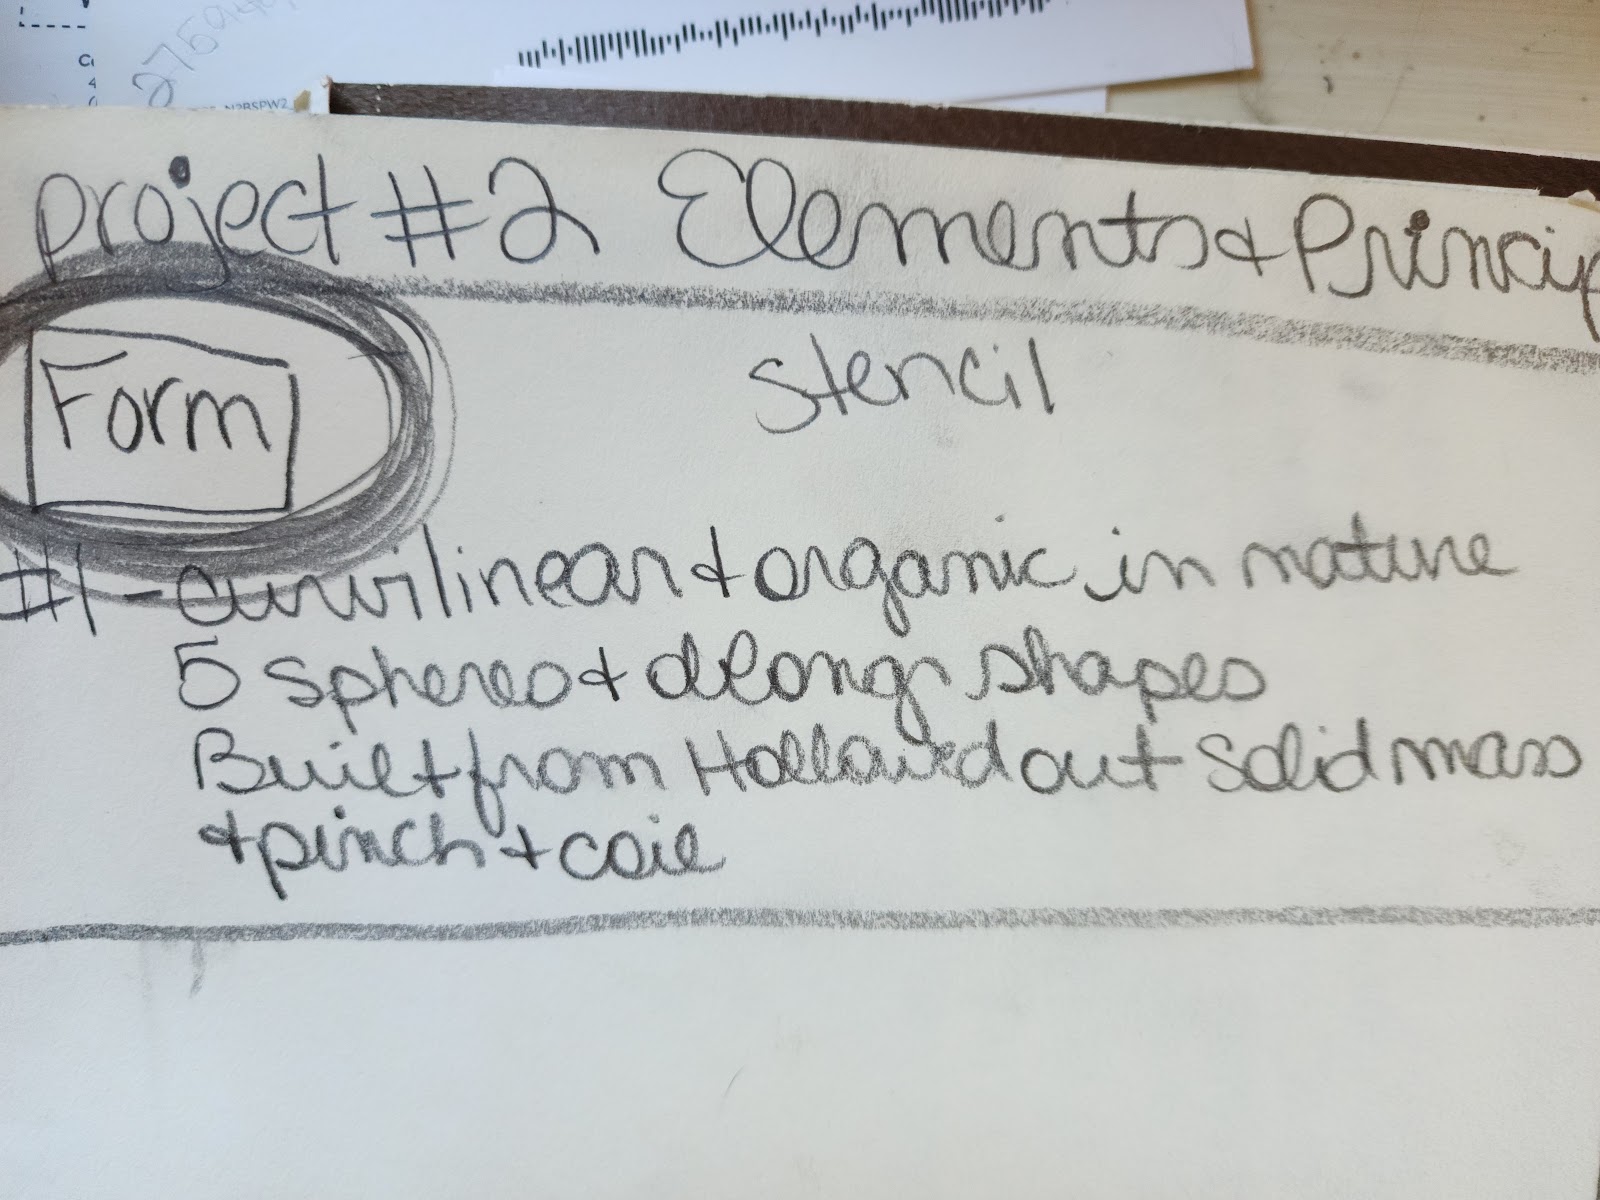 N2BSPW2
project #2 Elements & Princip
Form
stencil
#1 - curvilinear & organic in nature
5 spheres & along shapes
Built from Hollowed out Solid mass
& pinch & coil